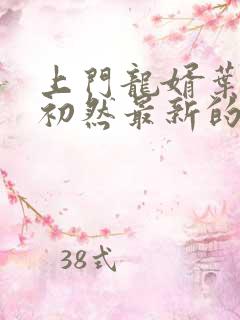 上門龍婿葉
初然最新的
38式